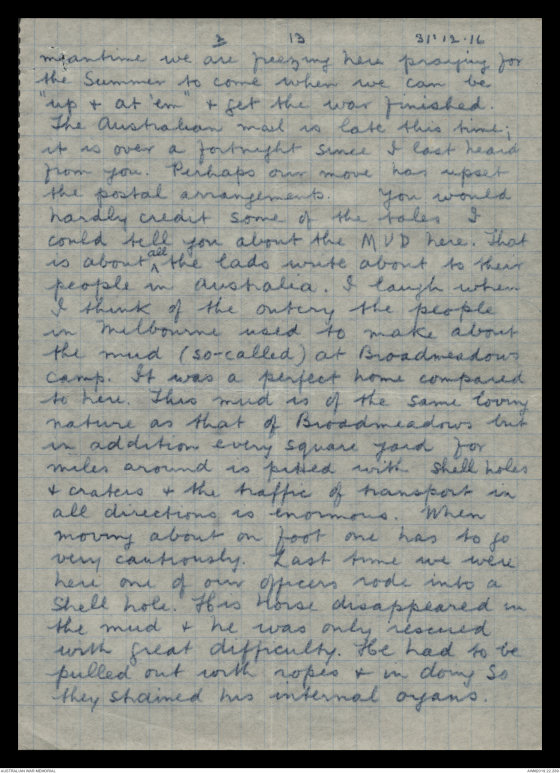 3 13 31.12.16
meantime we are freezing here praying for
the Summer to come when we can be
"up & at 'em" & get the war finished.
The Australian mail is late this time;
it is over a fortnight since I last heard
from you. Perhaps our move has upset
the postal arrangements. You would
hardly credit some of the tales I
could tell you about the MUD here. That
is about all the lads write about to their
people in Australia. I laugh when
I think of the outcry the people
in Melbourne used to make about
the mud (so-called) at Broadmeadows
camp. It was a perfect home compared
to here. This mud is of the same loving
nature as that of Broadmeadows but
in addition every square yard for
miles around is pitted with shell holes
& craters & the traffic of transport in
all directions is enormous. When
moving about on foot one has to go
very cautiously. Last time we were
here one of our officers rode into a
Shell hole. His horse disappeared in
the mud & he was only rescued
with great difficulty. He had to be
pulled out with ropes & in doing so
they strained his internal organs.
AUSTRALIAN WAR MEMORIAL